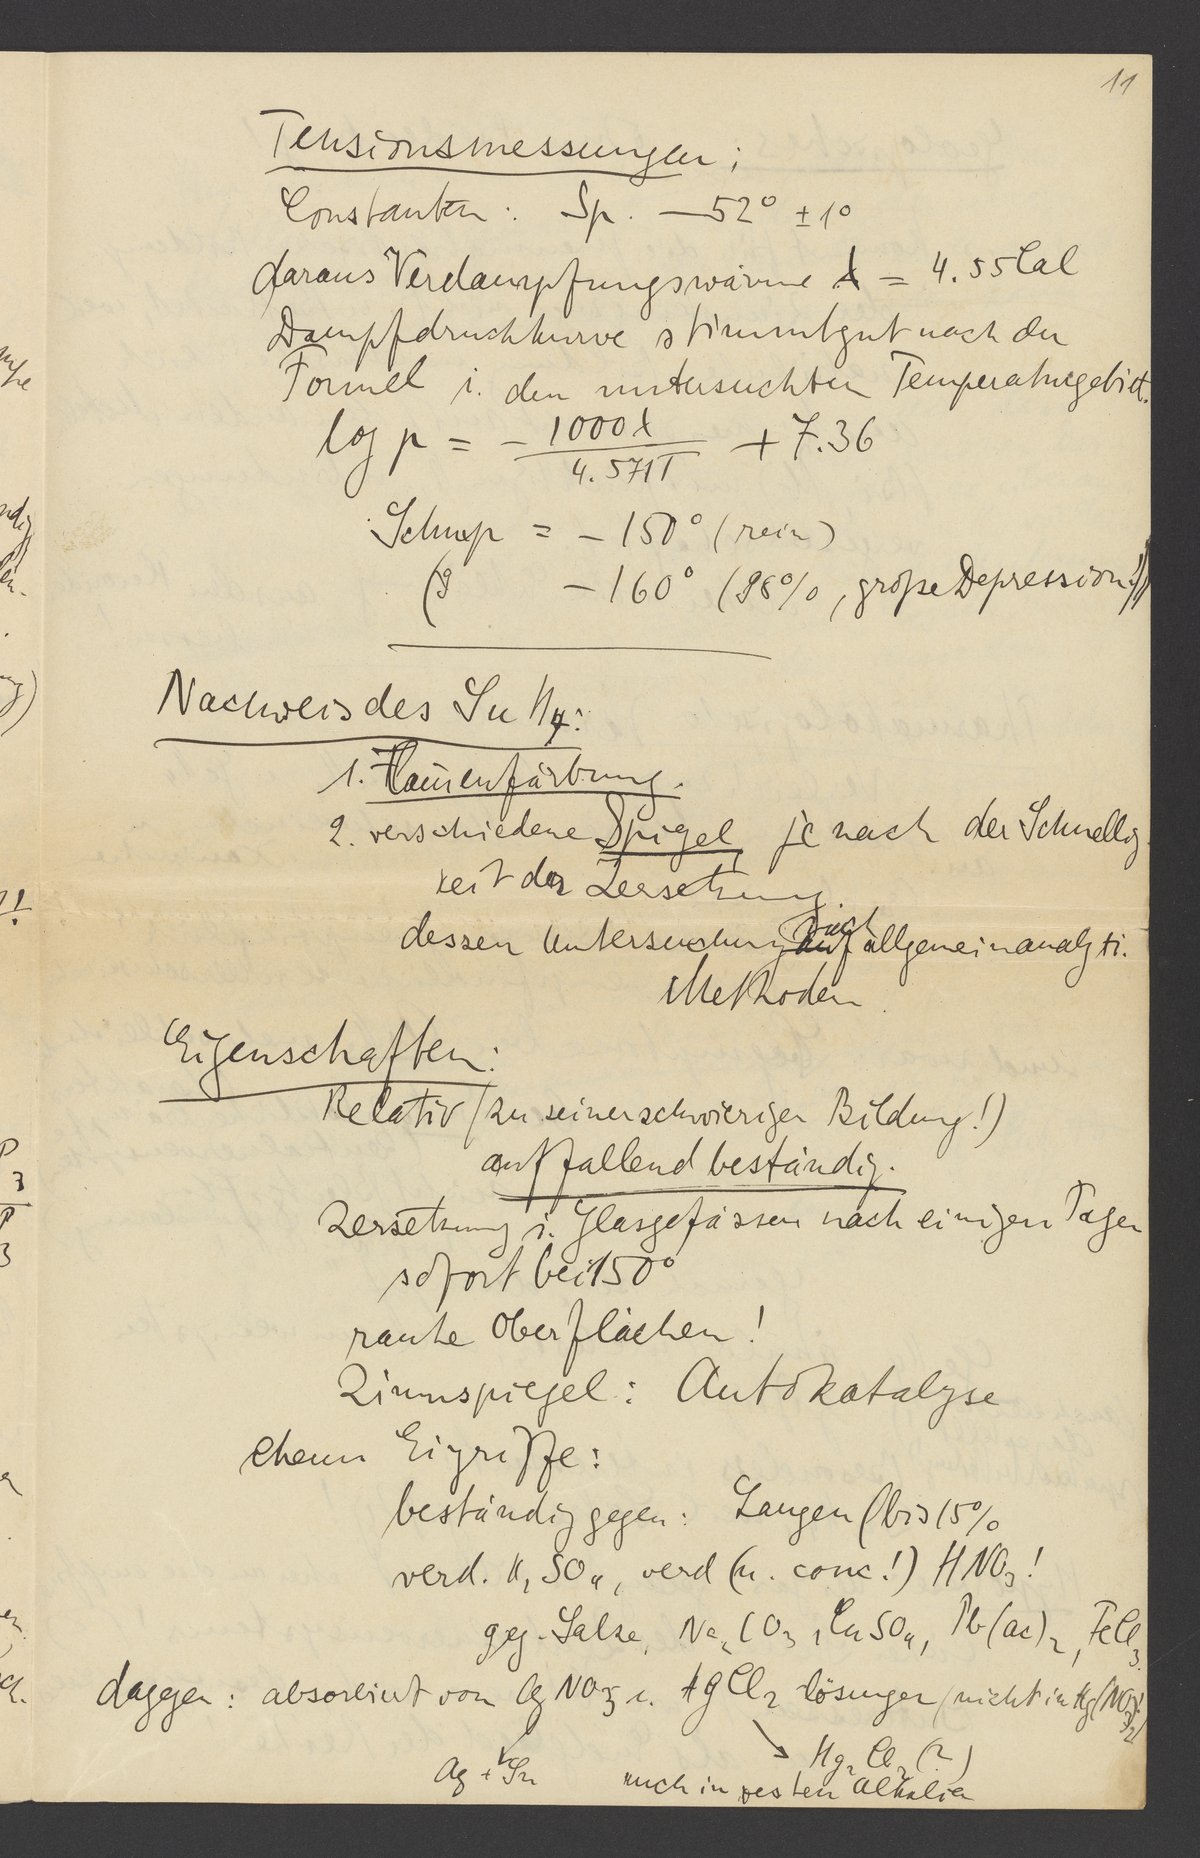 11
Tensionsmessungen:
Constanten: Sp. —52° ±1°
daraus Verdampfungswärme λ = 4.55 Cal
Dampfdruckkurve stimmt gut nach der
Formel i. den untersuchten Temperaturgebiet.
log p = - 1000λ / 4.571T + 7.36
Schmp = -150° (rein)
-160° (98%, große Depression!)
Nachweis des SnH4:
1. Flam̅enfärbung.
2. verschiedene Spiegel je nach der Schnellig-
keit der Zersetzung.
dessen Untersuchung durch allgemein analyti.
Methoden
Eigenschaften:
Relativ (zu seiner schwieriger Bildung!)
auffallend beständig.
Zersetzung i. Glasgefässen nach einigen Tagen
sofort bei 150°
rauhe Oberflächen!
Zinnspiegel: Autokatalyse
chem Eigriffe:
beständig gegen: Laugen (bis 15%
verd. H2SO4, verd (u. conc!) HNO3!
geg. Salze, Na2CO3, CuSO4, Pb(ac)2, FeCl3
daggen: absorbiert von AgNO3 u. HgCl2 lösungen (nicht in Hg(NO3)2!)
Hg2Cl2(?)
Ag + Sn
auch in festen Alkalien